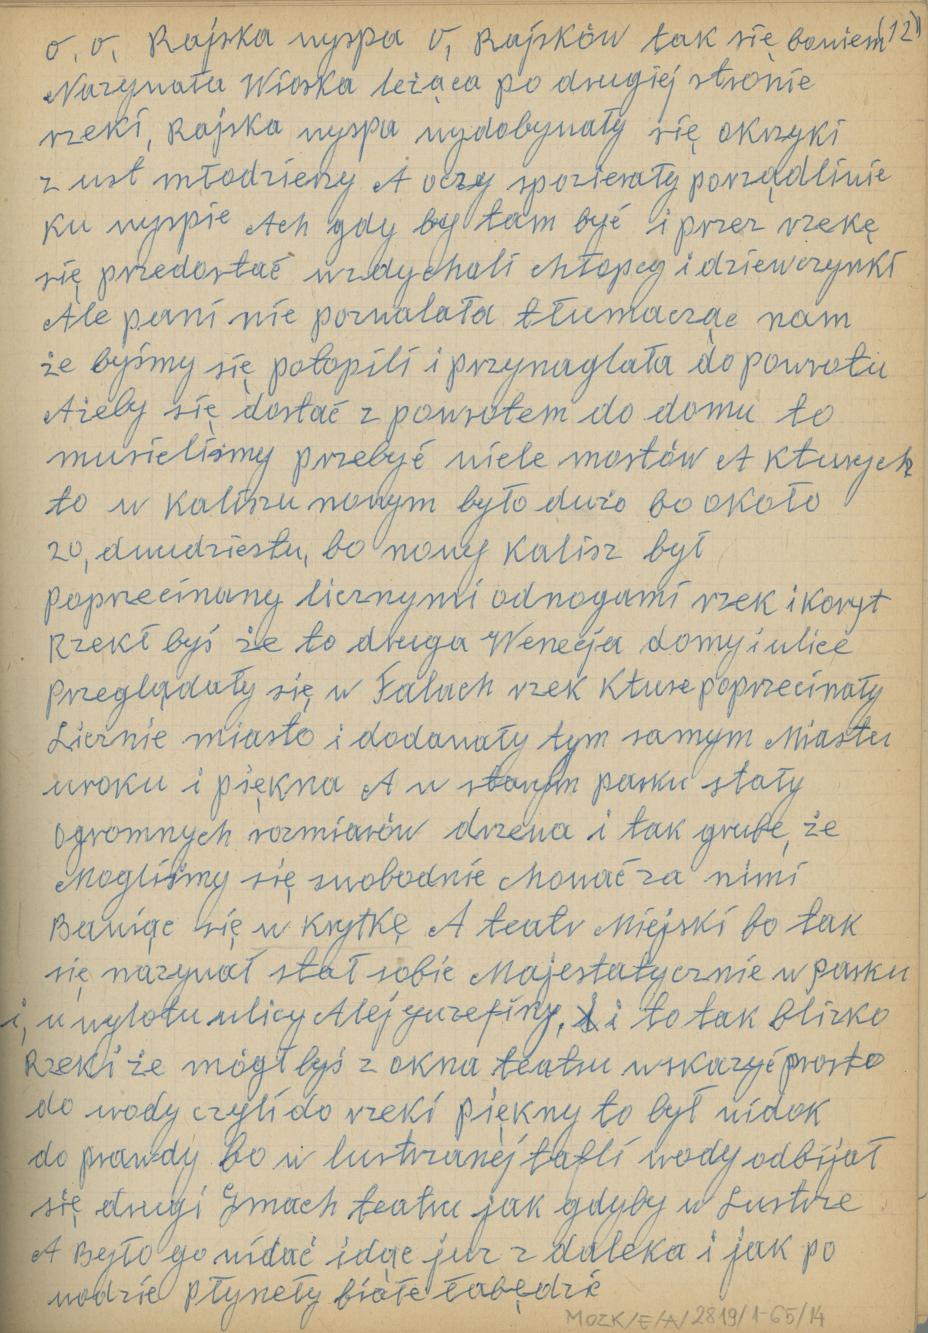 o, o, Rajska wyspa o, Rajsków tak się bowiem (12)
Nazywała Wioska leżąca po drugiej stronie
rzeki, Rajska wyspa wydobywały się okrzyki
z ust młodzieży A oczy spozierały porządliwie
ku wyspie Ach gdy by tam być i przez rzekę
się przedostać wzdychali chłopcy i dziewczynki
Ale pani nie pozwalała tłumacząc nam
że byśmy się potopili i przynaglała do powrotu
Ażeby się dostać z powrotem do domu to
musieliśmy przebyć wiele mostów A kturych
to w Kaliszu nowym było dużo bo około
20, dwudziestu, bo nowy Kalisz był
poprzecinany licznymi odnogami rzek i koryt
Rzekł byś że to druga Wenecja domy i ulice
Przeglądały się w Falach rzek kture poprzecinały
Licznie miasto i dodawały tym samym Miastu
uroku i piękna A w starym parku stały
ogromnych rozmiarów drzewa i tak grube, że
Mogliśmy się swobodnie chować za nimi
Bawiąc się w krytkę A teatr Miejski bo tak
się nazywał stał sobie Majestatycznie w parku
i, u wylotu ulicy Alej Juzefiny, i to tak blizko
Rzeki że mógł byś z okna teatru wskazyć prosto
do wody czyli do rzeki piękny to był widok
do prawdy bo w lustrzanej tafli wody odbijał
się drugi Gmach teatru jak gdyby w Lustrze
A Było go widać idąc już z daleka i jak po
wodzie Płynęły białe łabędzie
MOZK/E/A/2819/1-65/14